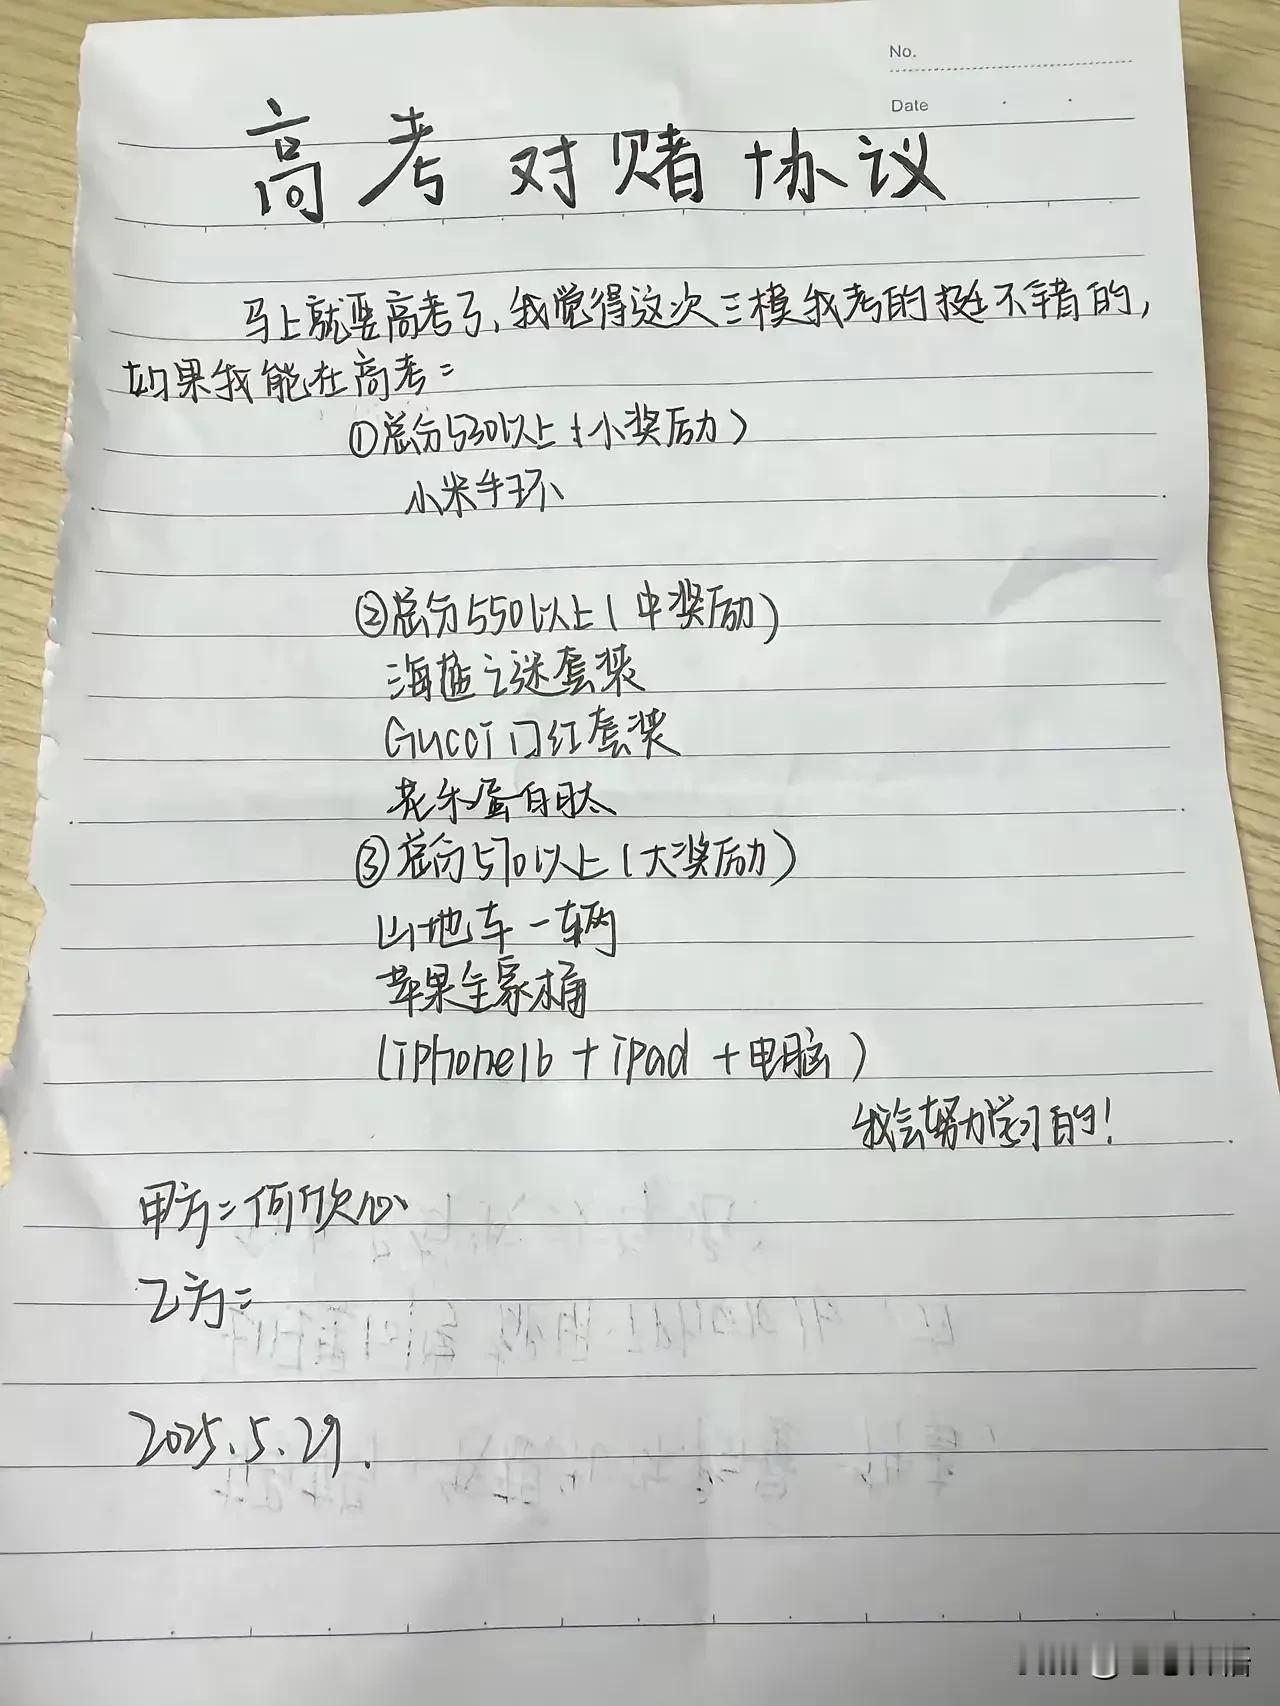 No.
Date
高考对赌协议
马上就要高考了,我觉得这次三模我考的挺不错的,
如果我能在高考:
①总分530以上(小奖励)
小米手环
②总分550以上(中奖励)
海蓝之谜套装
Gucci口红套装
花乐蛋白肽
③总分570以上(大奖励)
山地车一辆
苹果全家桶
(iphone16+ipad+电脑)
我会努力学习的!
甲方:何欣心
乙方:
2025.5.29.